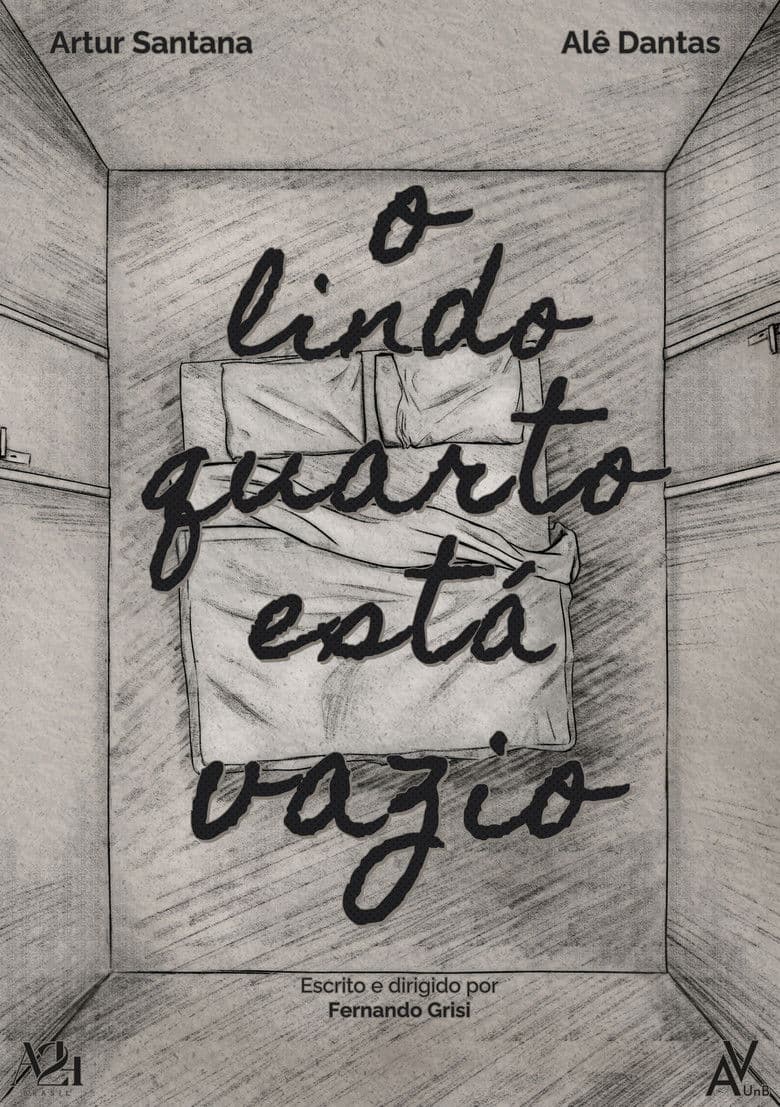 Artur Santana
Alê Dantas
o
lindo
quarto
está
vazio
Escrito e dirigido por
Fernando Grisi
A24
BRASIL
AV
UnB